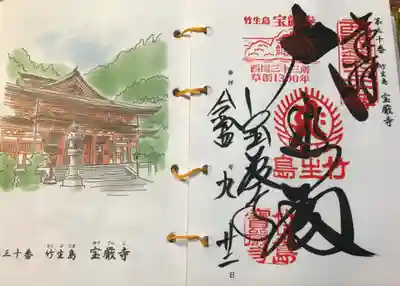 第三十番 竹生島 宝厳寺
奉拝
大悲殿
竹生島
西国三十三所
草創1300年
竹生島
宝厳寺
年 九 廿二 日
三十番 竹生島 宝厳寺